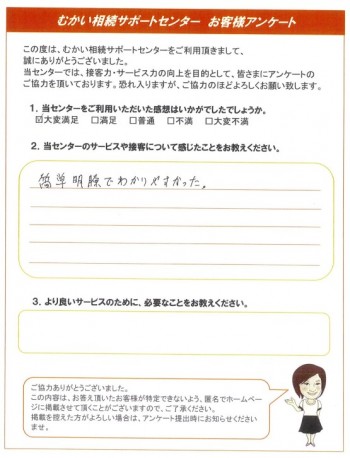 むかい相続サポートセンター　お客様アンケート
この度は、むかい相続サポートセンターをご利用頂きまして、
誠にありがとうございました。
当センターでは、接客力・サービス力の向上を目的として、皆さまにアンケートの
ご協力を頂いております。恐れ入りますが、ご協力のほどよろしくお願い致します。
1. 当センターをご利用いただいた感想はいかがでしたでしょうか。
☑大変満足　□満足　□普通　□不満　□大変不満
2. 当センターのサービスや接客について感じたことをお教えください。
簡単明瞭でわかりやすかった。
3. より良いサービスのために、必要なことをお教えください。
ご協力ありがとうございました。
この内容は、お答え頂いたお客様が特定できないよう、匿名でホームペー
ジに掲載させて頂くことがございますので、ご了承ください。
掲載を控えた方がよろしい場合は、アンケート提出時にお知らせください
ませ。